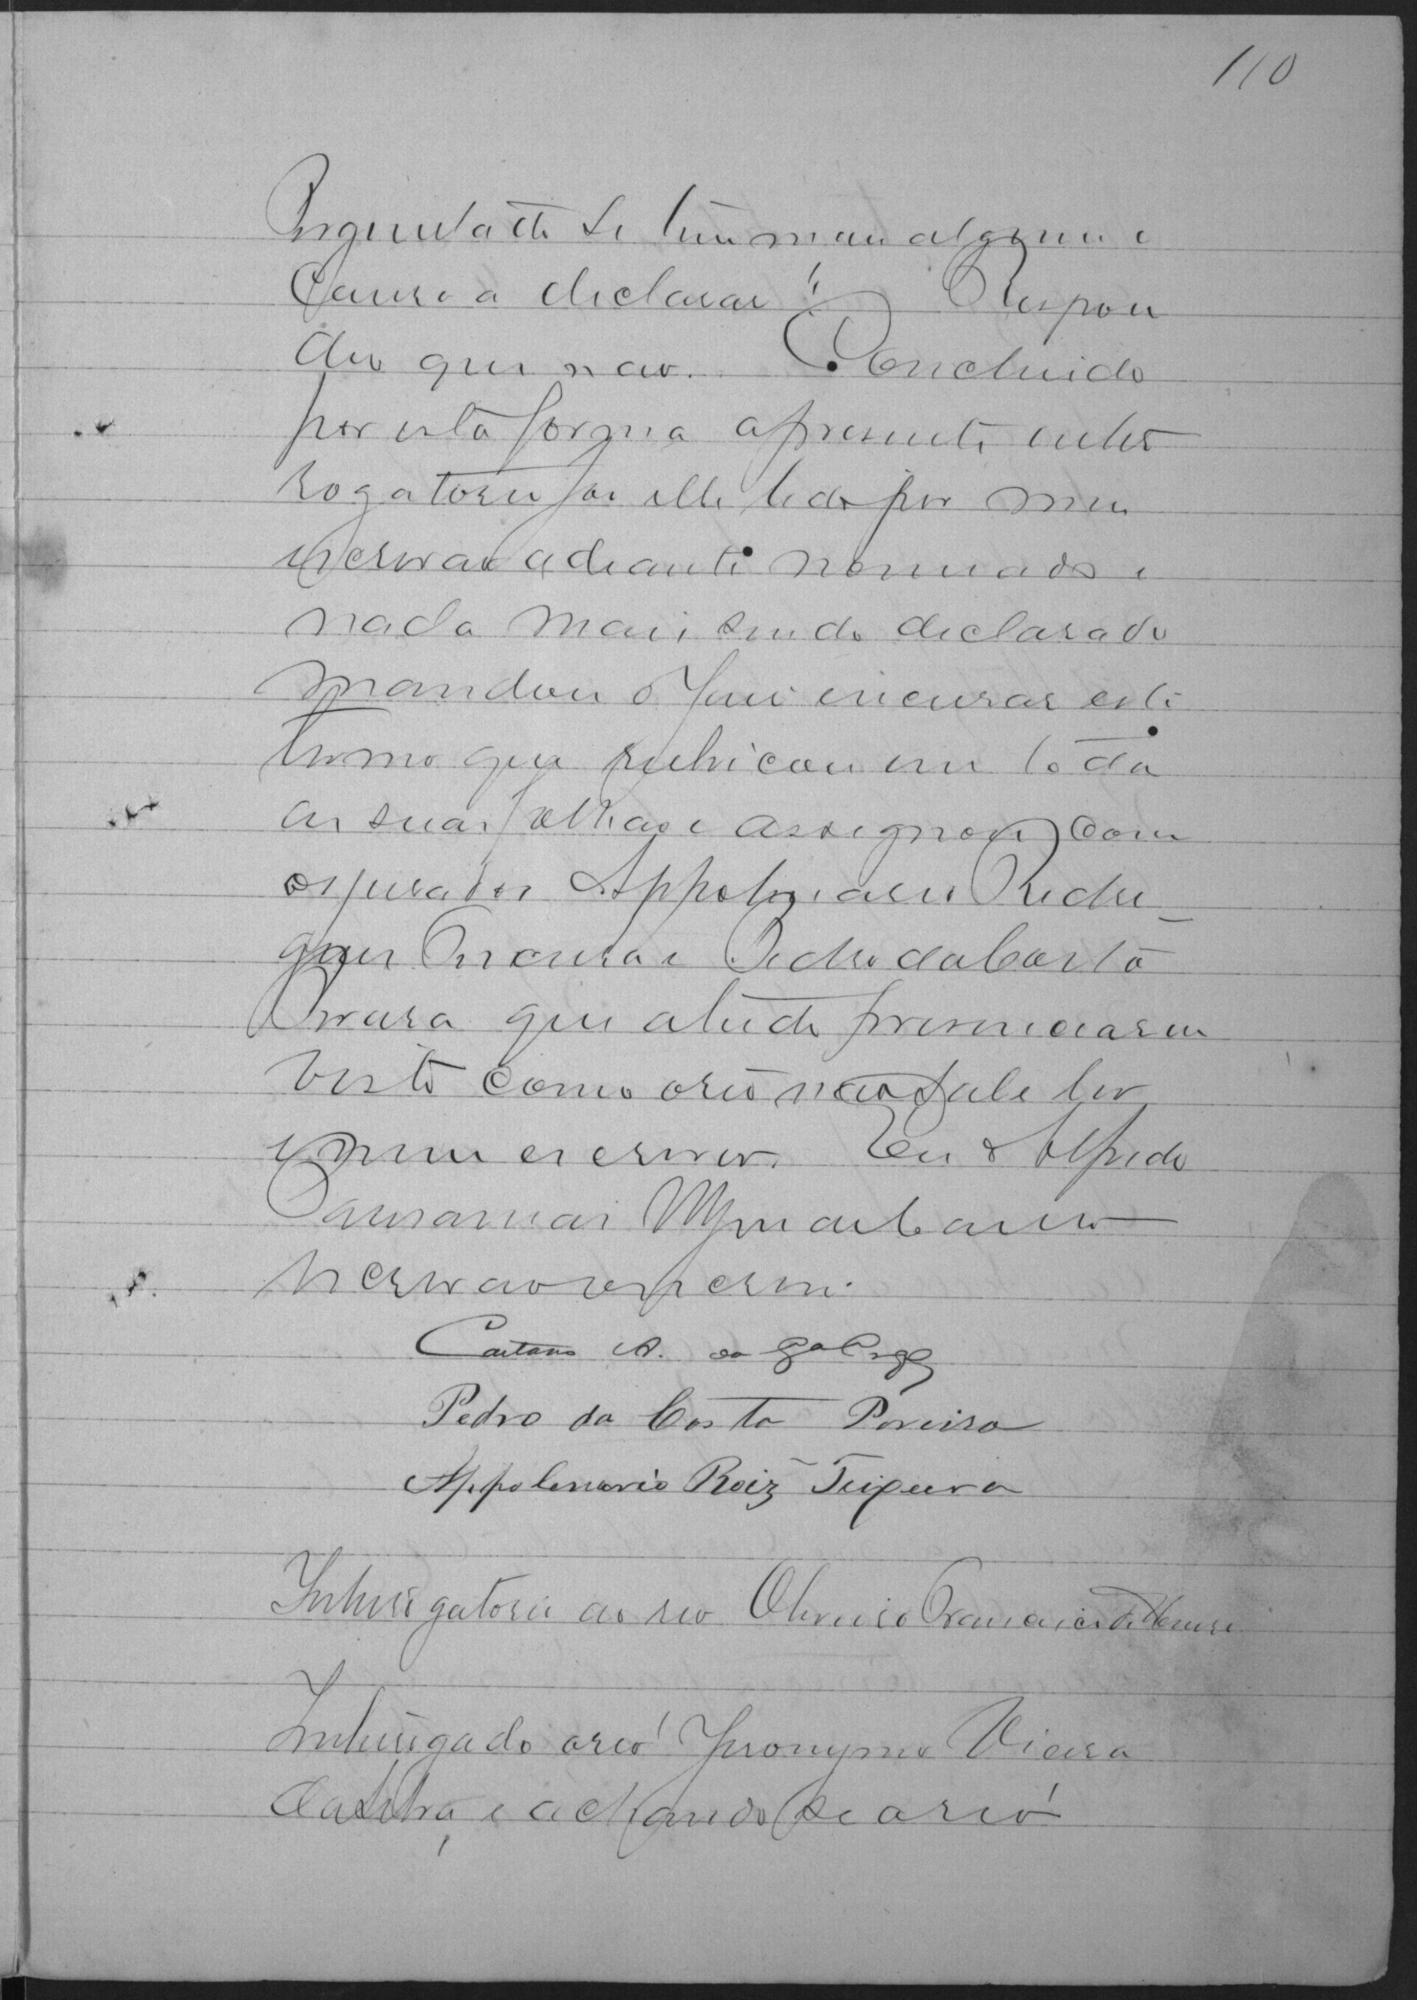 110
Perguntado se tem mais alguma
cousa a declarar? Respon
deu que não. Concluido
por esta forma a presente inter
rogatorio foi elle lido por mim
escrivão adiante nomeado e
nada mais sendo declarado
mandou o Juiz encerrar este
termo que rubricou em toda
as suas folhas e assignou com
os jurados Appolinario Rodri-
gues e Pedro da Costa
Pereira que a tudo presenciaram
visto como o reo não sabe ler
e nem escrever. Eu Alfredo
escrivão o escrevi.
Caetano A. da
Pedro da Costa Pereira
Appolenario Roiz Teixeira
Interrogatorio ao reo Oliveiro Francisco de
Interrogado o reo Jeronymo Vieira
da Silva, e achando se o reo